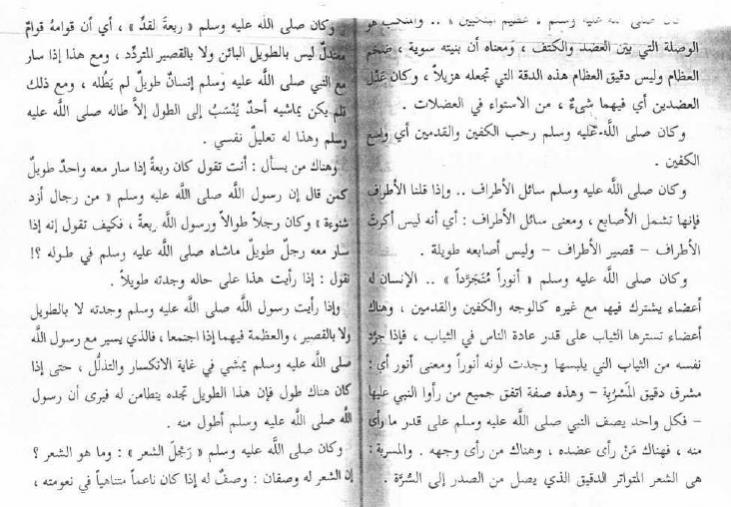 كان صلى الله عليه وسلم « عظيم المنكبين » .. والمنكب هو
الوصلة التي بين العضد والكتف ، ومعناه أن بنيته سوية ، ضخم
العظام وليس دقيق العظام هذه الدقة التي تجعله هزيلاً ، وكان عَبْل
العضدين أي فيهما شىءٌ ، من الاستواء في العضلات .
وكان صلى اللَّه عليه وسلم رحب الكفين والقدمين أي واسع
الكفين .
وكان صلى اللَّه عليه وسلم سائل الأطراف .. وإذا قلنا الأطراف
فإنها تشمل الأصابع ، ومعنى سائل الأطراف : أي أنه ليس أكرتَ
الأطراف – قصير الأطراف – وليس أصابعه طويلة .
وكان صلى اللَّه عليه وسلم « أنوراً مُتَجَرَّداً » .. الإنسان له
أعضاء يشترك فيها مع غيره كالوجه والكفين والقدمين ، وهناك
أعضاء تسترها الثياب على قدر عادة الناس في الثياب ، فإذا جرَّد
نفسه من الثياب التي يلبسها وجدت لونه أنوراً ومعنى أنور أي :
مشرق دقيق المَسْرُبة – وهذه صفة اتفق جميع من رأوا النبي عليها
– فكل واحد يصف النبي صلى اللَّه عليه وسلم على قدر ما رأى
منه ، فهناك مَنْ رأى عضده ، وهناك من رأى وجهه . والمسربة :
هى الشعر المتواتر الدقيق الذي يصل من الصدر إلى السُّرَّة .
وكان صلى اللَّه عليه وسلم « ربعةَ لقدٍّ » ، أي أن قوامهُ قوامٌ
معتدلٌ ليس بالطويل البائن ولا بالقصير المتردِّد ، ومع هذا إذا سار
مع النبي صلى اللَّه عليه وسلم إنسانٌ طويلٌ لم يَطُله ، ومع ذلك
فلم يكن يماشيه أحدٌ يُنْسَبُ إلى الطول إلاَّ طاله صلى اللَّه عليه
وسلم وهذا له تعليلٌ نفسي .
وهناك من يسأل : أنت تقول كان ربعةً إذا سار معه واحدٌ طويلٌ
كمن قال إن رسول اللَّه صلى اللَّه عليه وسلم « من رجال أزد
شنوءة » وكان رجلاً طوالاً ورسول اللَّه ربعةً ، فكيف تقول إنه إذا
سار معه رجلٌ طويلٌ ماشاه صلى اللَّه عليه وسلم في طـوله ؟!
نقول : إذا رأيت هذا على حاله وجدته طويلاً .
وإذا رأيت رسول اللَّه صلى اللَّه عليه وسلم وجدته لا بالطويل
ولا بالقصير ، والعظمة فيهما إذا اجتمعا ، فالذي يسير مع رسول اللَّه
صلى اللَّه عليه وسلم يمشي في غاية الانكسار والتذلُّل ، حتى إذا
كان هناك طول فإن هذا الطويل تجده يتطامن له فيرى أن رسول
اللَّه صلى اللَّه عليه وسلم أطول منه .
وكان صلى اللَّه عليه وسلم « رَجْلَ الشعر » : وما هو الشعر ؟
إن الشعر له وصفان : وصفٌ له إذا كان ناعماً متناهياً في نعومته ،